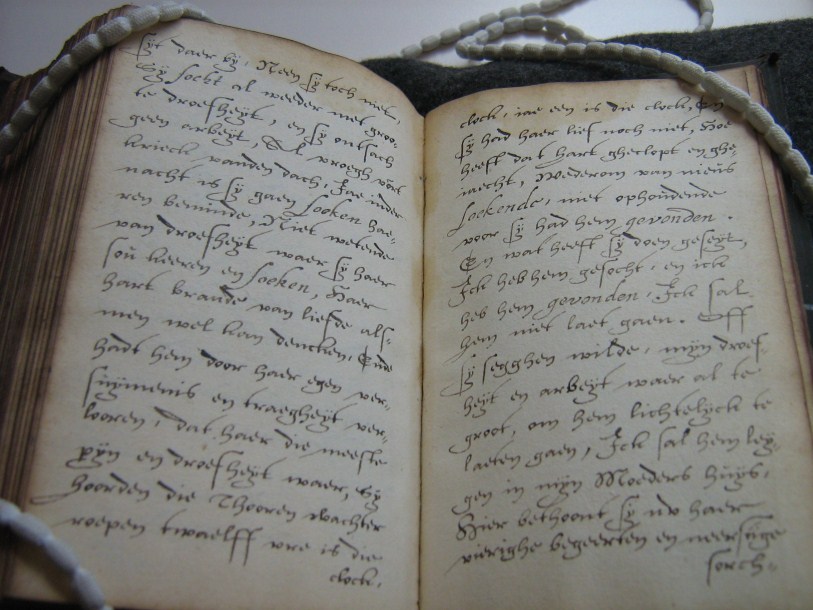 Syt daer by, Neen sy toch niet,
Sy soekt al weeder met groo-
te droefheyt, en sy ontsach
geen arbeyt, Al vroegh voor
krieck vanden dach, Jae inder
nacht is sy gaen soeken hae-
ren beminde, Niet wetende
van droefheyt waer sy haer
sou keeren en soeken, Haer
hart brande van liefde als-
men wel kan dencken, Ende
hadt hem door haer egen ver-
suymenis en traegheyt ver-
looren, dat haer die meeste
pyn en droefheyt waer, Sy
hoorden die Thooren wachter
roepen twaelff vre is die
clock.
clock, iae een is die clock, En
sy had haer lief noch niet, Hoe
heeft dat hart gheclopt en ghe-
iaecht, Wederom van nieus
soekende, niet ophoudende
voor sy had hem gevonden.
En wat heeft sy doen geseyt,
Ick heb hem gesocht, en ick
heb hem gevonden, Ick sal
hem niet laet gaen. Off
sy segghen wilde, mijn droef-
heyt en arbeyt waer al te
groot, om hem lichtelyck te
laeten gaen, Ick sal hem ley-
gen in mijn Moeders huys,
Hier bethoont sy nv haer
vierighe begeerten en neerstige
sorch-